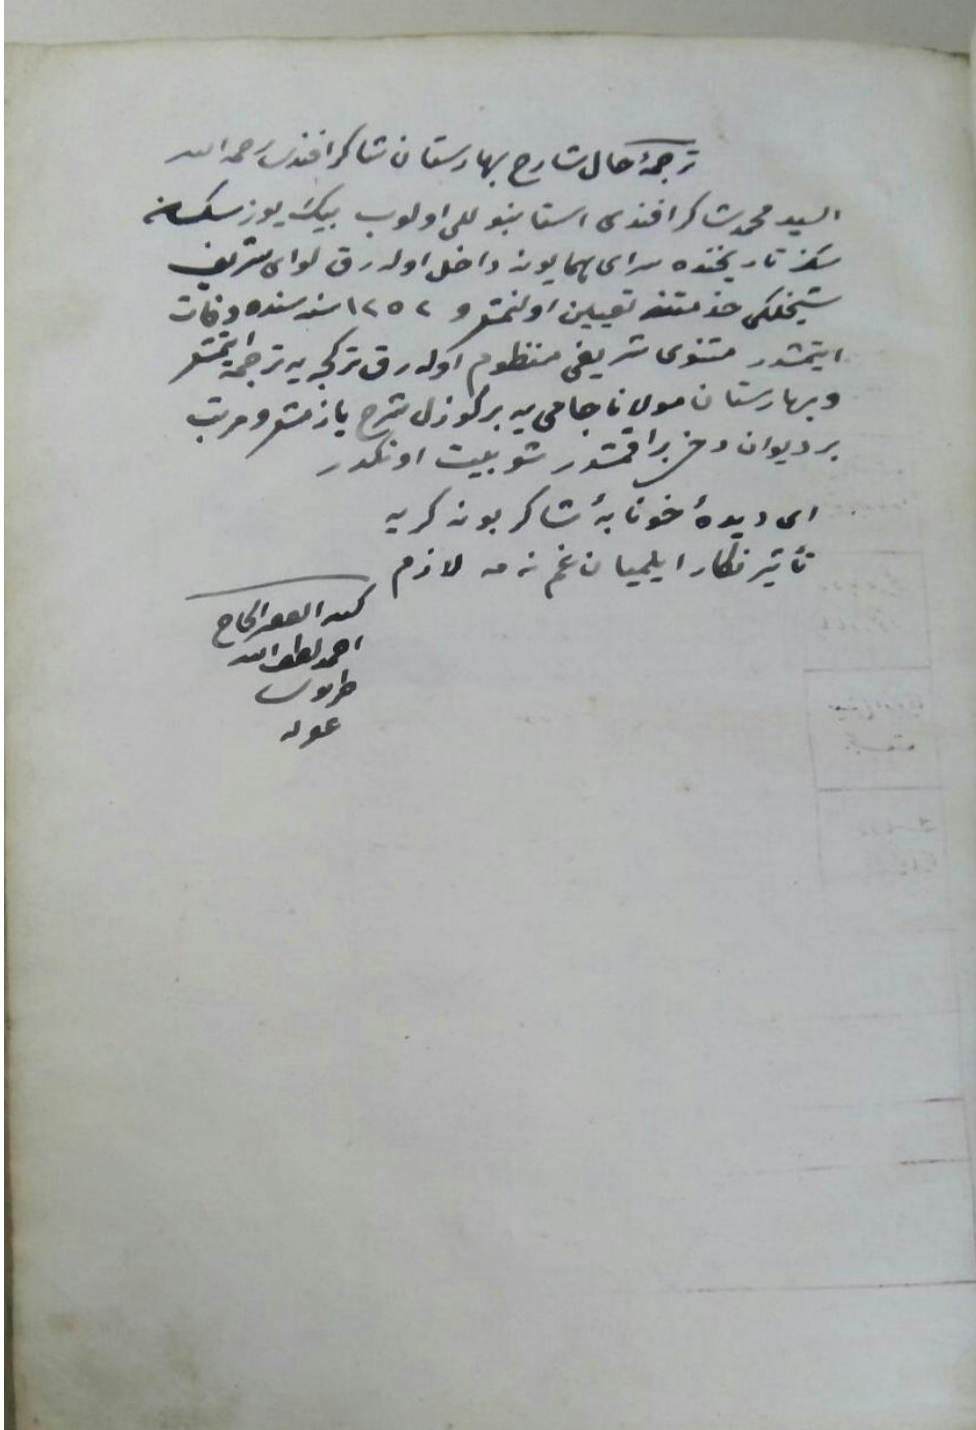 ترجمهٔ حال شارح بهارستان شاكر افندى رحمه الله
السيد محمد شاكر افندى استانبوللى اولوب بيك يوز سكسان
سكز تاريخنده سراى همايونه داخل اوله رق لواى شريف
شيخلكى خدمتنه تعيين اولنمش و ١٢٥٢ سنه سنده وفات
ايتمشدر مثنوى شريفى منظوم اوله رق تركجه يه ترجمه ايتمش
و بهارستان مولانا جامى يه بر كوزل شرح يازمش و مرتب
بر ديوان دخى براقمشدر شو بيت اونكدر
اى ديدهٔ خونابهٔ شاكر بو نه كريه
تأثير نكار ايلميان غم نه مه لازم
كتبه الفقير الحاج
احمد لطف الله